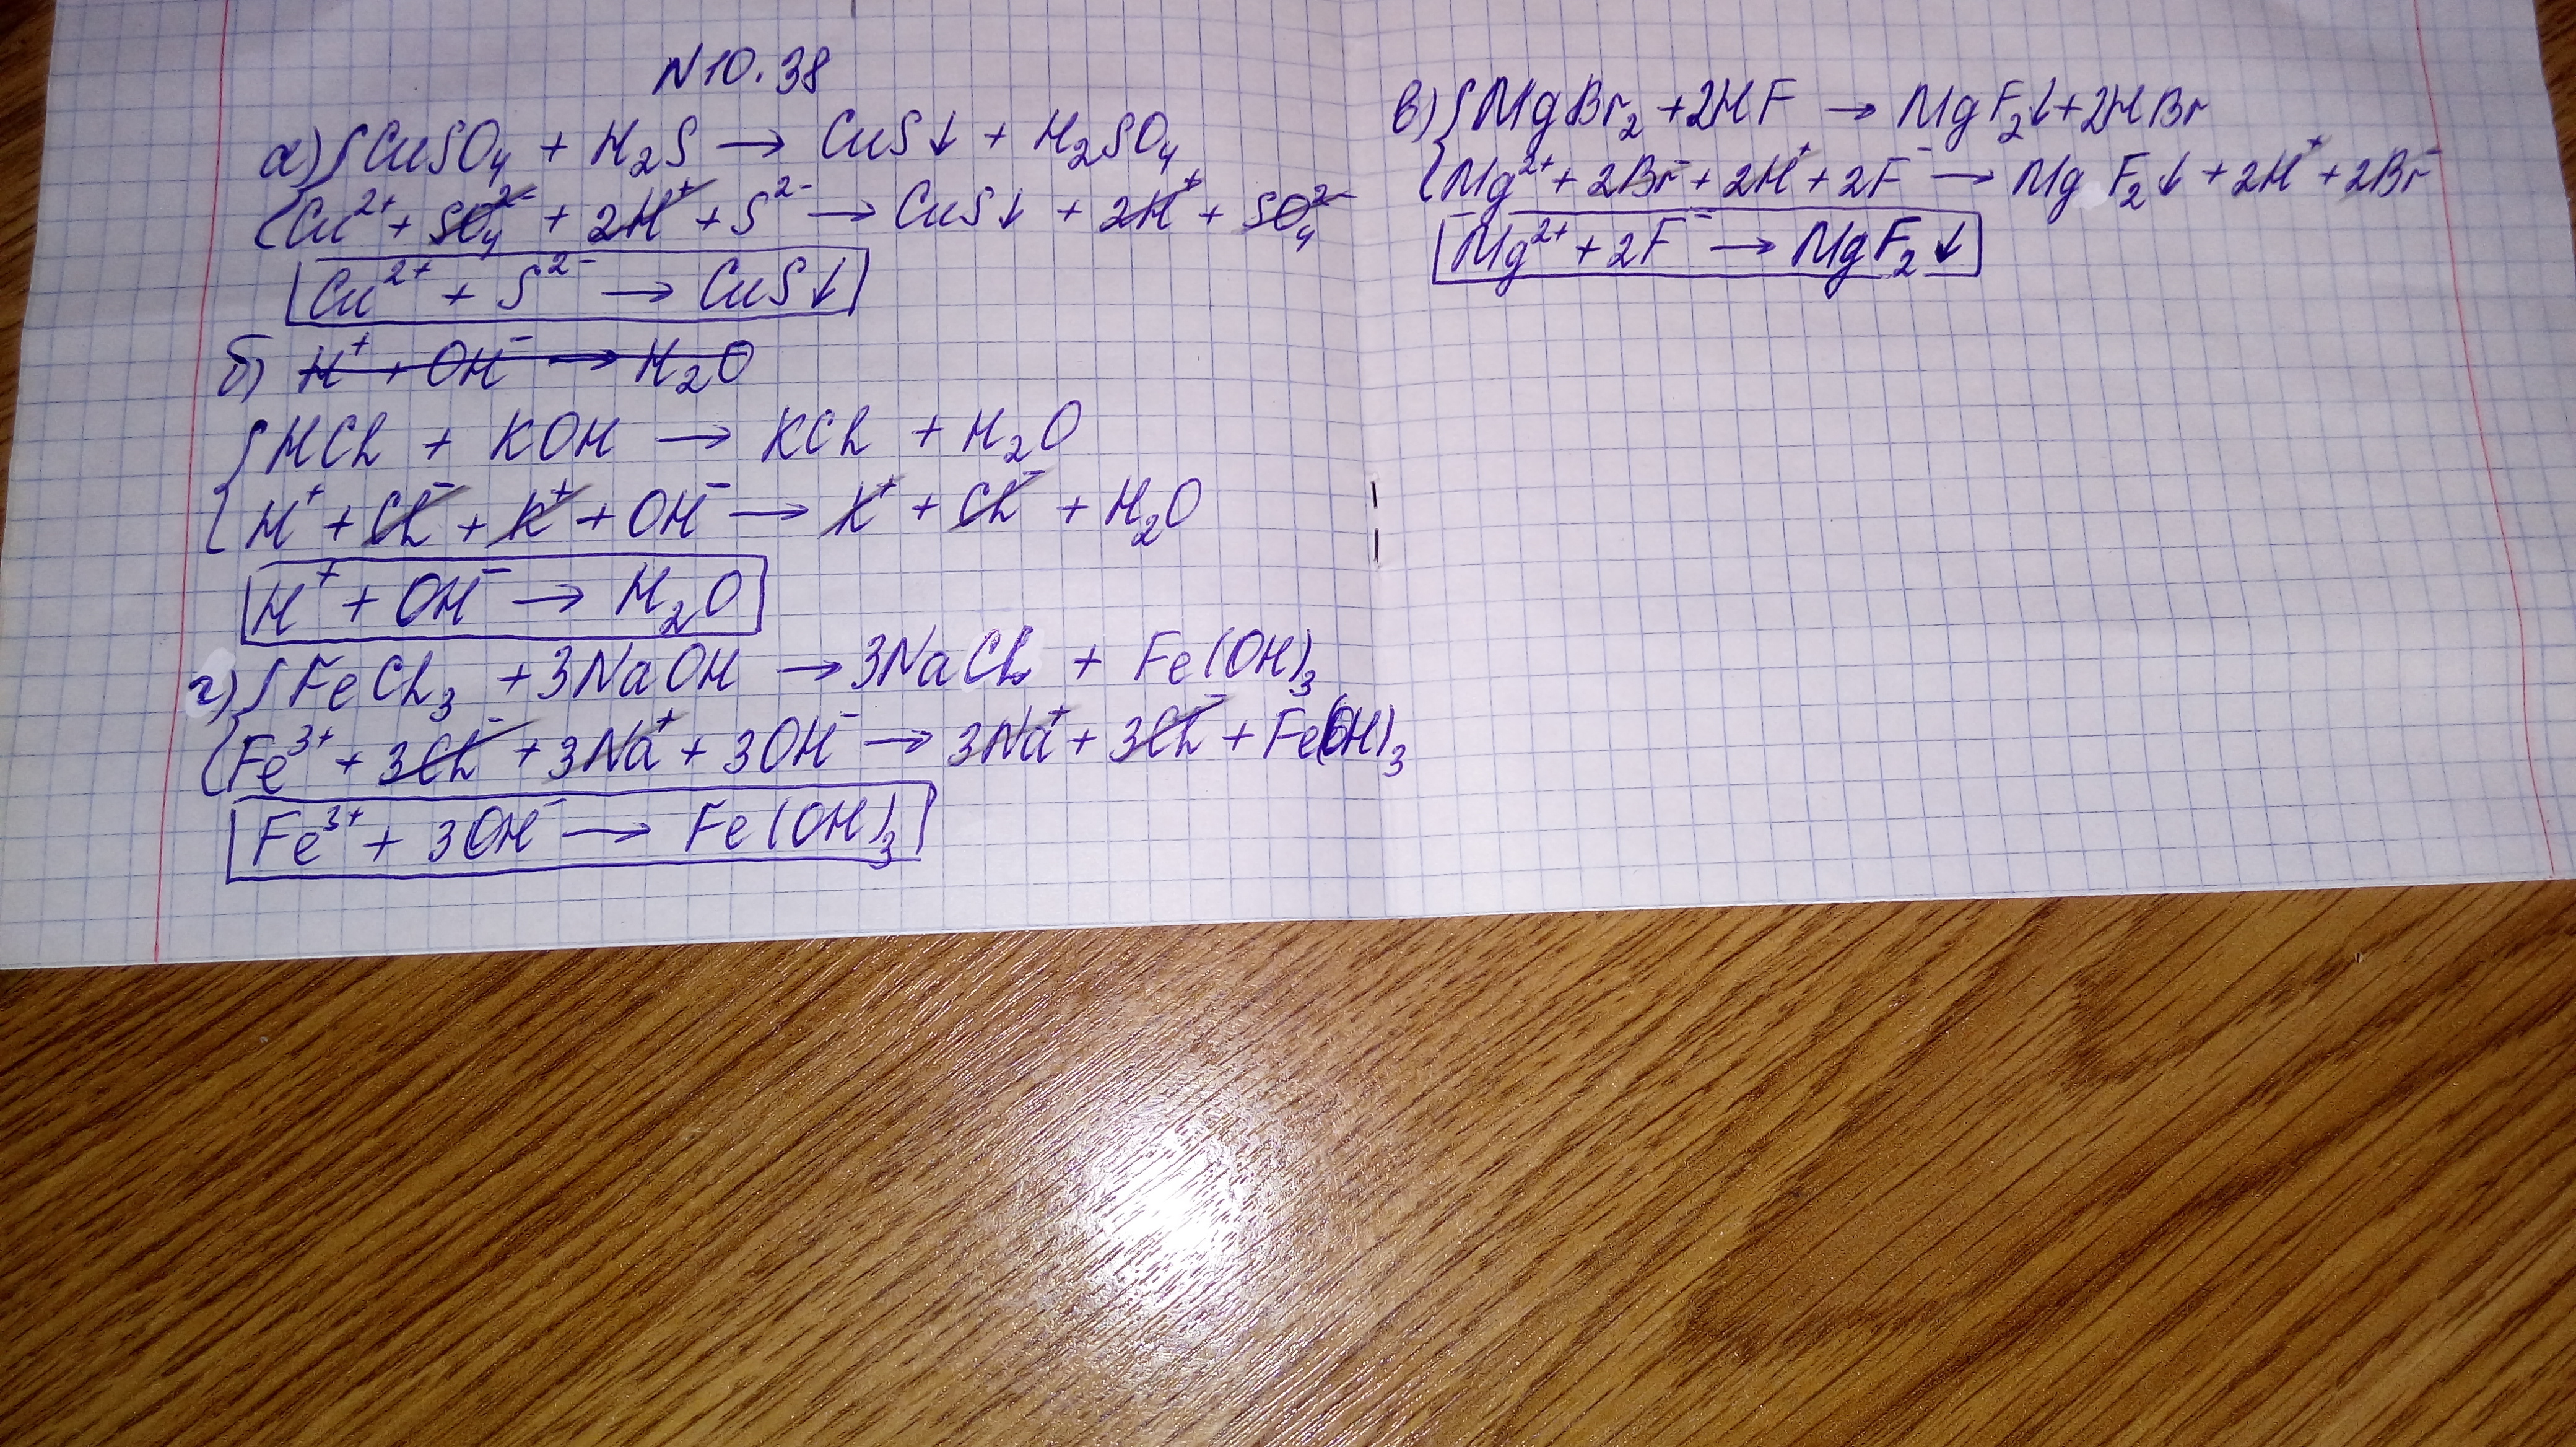 N10.38
а) CuSO₄ + H₂S → CuS↓ + H₂SO₄
Cu²⁺ + SO₄²⁻ + 2H⁺ + S²⁻ → CuS↓ + 2H⁺ + SO₄²⁻
Cu²⁺ + S²⁻ → CuS↓
б) H⁺ + OH⁻ → H₂O
HCl + KOH → KCl + H₂O
H⁺ + Cl⁻ + K⁺ + OH⁻ → K⁺ + Cl⁻ + H₂O
H⁺ + OH⁻ → H₂O
г) FeCl₃ + 3NaOH → 3NaCl + Fe(OH)₃
Fe³⁺ + 3Cl⁻ + 3Na⁺ + 3OH⁻ → 3Na⁺ + 3Cl⁻ + Fe(OH)₃
Fe³⁺ + 3OH⁻ → Fe(OH)₃
в) MgBr₂ + 2HF → MgF₂↓ + 2HBr
Mg²⁺ + 2Br⁻ + 2H⁺ + 2F⁻ → MgF₂↓ + 2H⁺ + 2Br⁻
Mg²⁺ + 2F⁻ → MgF₂↓